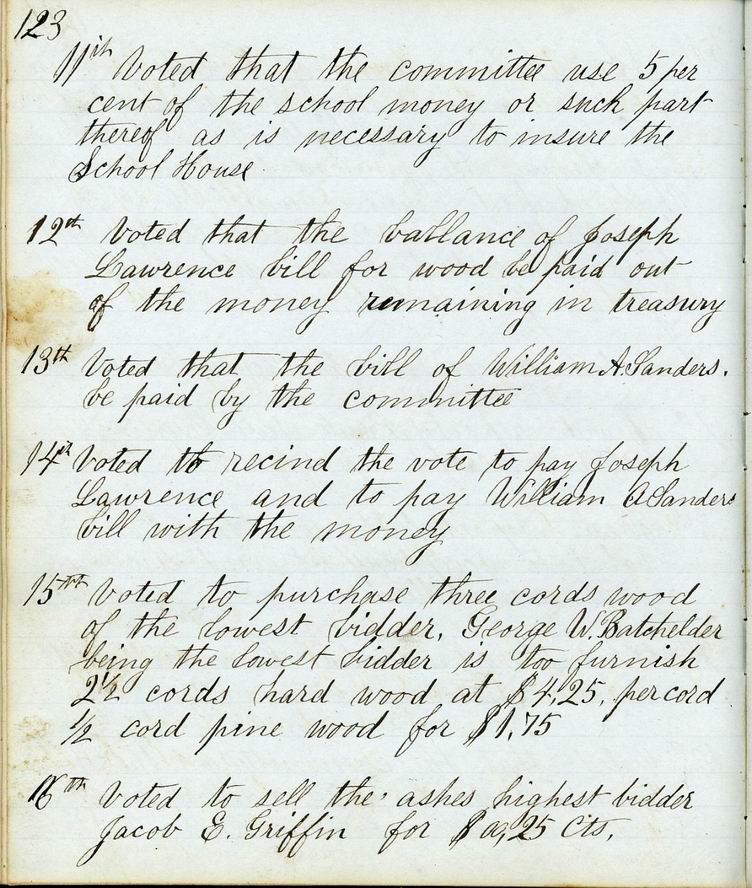 123
11th Voted that the committee use 5 per
cent of the school money or such part
thereof as is necessary to insure the
School House
12th Voted that the ballance of Joseph
Lawrence bill for wood be paid out
of the money remaining in treasury
13th Voted that the bill of William A. Sanders.
be paid by the committee
14th Voted to recind the vote to pay Joseph
Lawrence and to pay William A Sanders
bill with the money
15th Voted to purchase three cords wood
of the lowest bidder, George W. Batchelder
being the lowest bidder is too furnish
2 1/2 cords hard wood at $4,25, per cord
1/2 cord pine wood for $1,75
16th Voted to sell the ashes highest bidder
Jacob E. Griffin for $00,25 Cts,